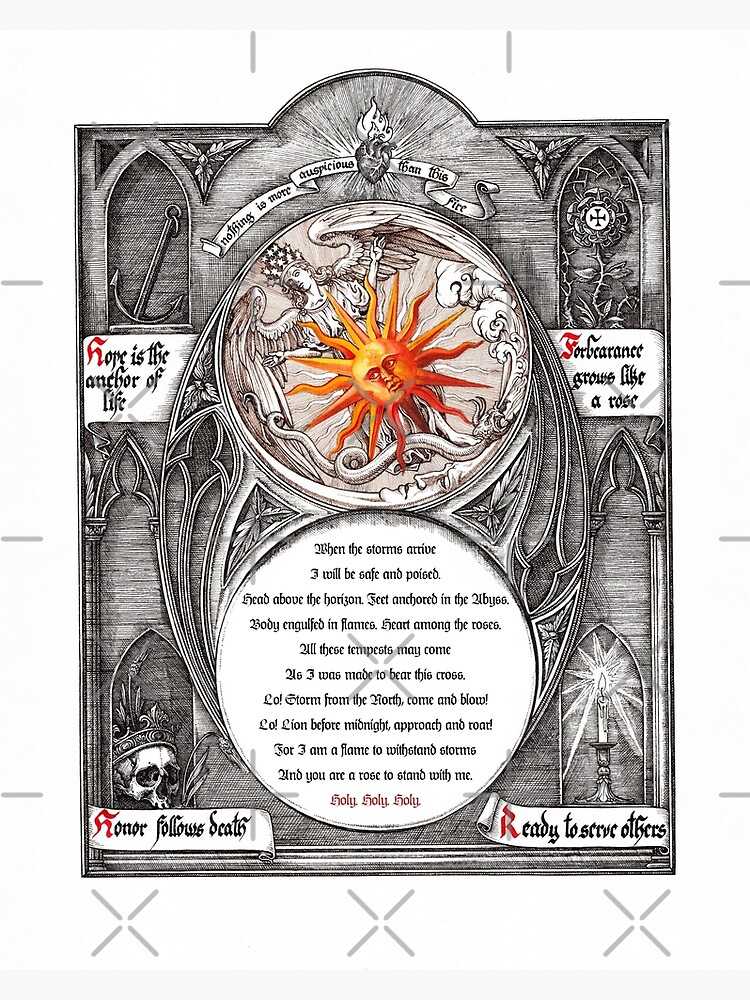 nothing is more auspicious than this fire
Hope is the
anchor of
life
Forbearance
grows like
a rose
When the storms arrive
I will be safe and poised.
Head above the horizon. Feet anchored in the Abyss.
Body engulfed in flames. Heart among the roses.
All these tempests may come
As I was made to bear this cross.
Lo! Storm from the North, come and blow!
Lo! Lion before midnight, approach and roar!
For I am a flame to withstand storms
And you are a rose to stand with me.
Holy. Holy. Holy.
Honor follows death
Ready to serve others